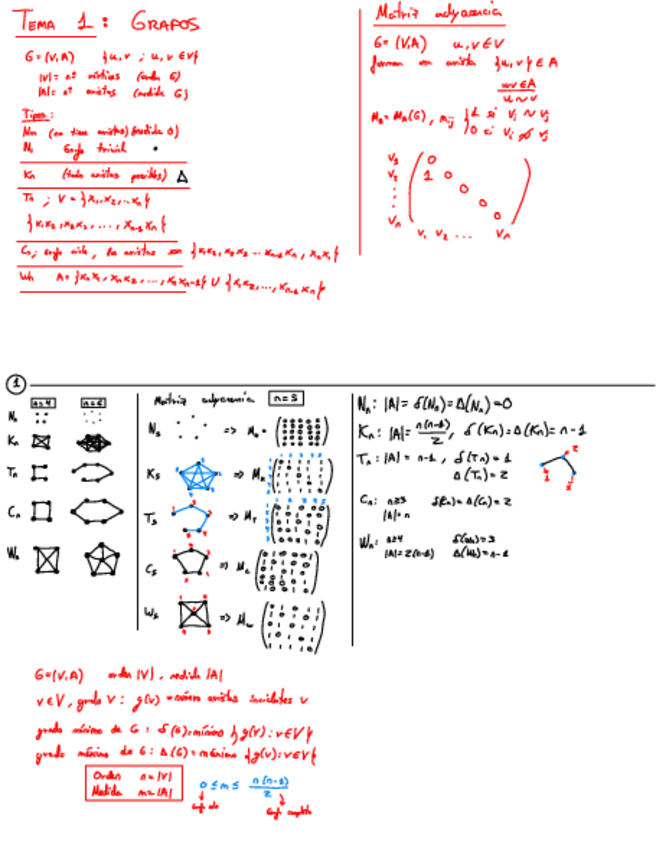 TEMA 1: GRAFOS
G=(V,A) {u,v ; u,v ∈ V}
|V|= nº vértices (orden G)
|A|= nº aristas (medida G)
Tipos:
Nn (no tiene aristas) (medida 0)
N1 Grafo trivial
Kn (todas aristas posibles)
Tn ; V={x1,x2,..xn}
{x1x2,x2x3,....,xn-1xn}
Cn; grafo ciclo, las aristas son {x1x2,x2x3 ... xn-1xn, xnx1}
Wn A={xnx1,xnx2,...,xnxn-1} U {x1x2,...,xn-1xn}
Matriz adyacencia
G=(V,A) u,v∈V
forman una arista {u,v}∈A
uv∈A
u~v
MG=MA(G), mij {1 si vi ~ vj
0 si vi ≁ vj
v1 0
v2 1 0
0
0
vn 0
v1 v2 ... vn
1
n=4 n=6
Nn
Kn
Tn
Cn
Wn
Matriz adyacencia n=5
N5 => MN=
K5 => MK
T5 => MT
C5 => MC
W5 => MW
Nn: |A|=δ(Nn)=Δ(Nn)=0
Kn: |A|= n(n-1)/2, δ(Kn)=Δ(Kn)=n-1
Tn: |A|= n-1, δ(Tn)=1
Δ(Tn)=2
1 2 1
Cn: n≥3 δ(Cn)=Δ(Cn)=2
|A|=n
Wn: n≥4 δ(Wn)=3
|A|=2(n-1) Δ(Wn)=n-1
G=(V,A) orden |V|, medida |A|
v∈V, grado v: g(v)=número aristas incidentes v
grado mínimo de G: δ(G)=mínimo {g(v):v∈V}
grado máximo de G: Δ(G)=máximo {g(v):v∈V}
Orden n=|V|
Medida m=|A|
0≤m≤ n(n-1)/2
Grafo completo